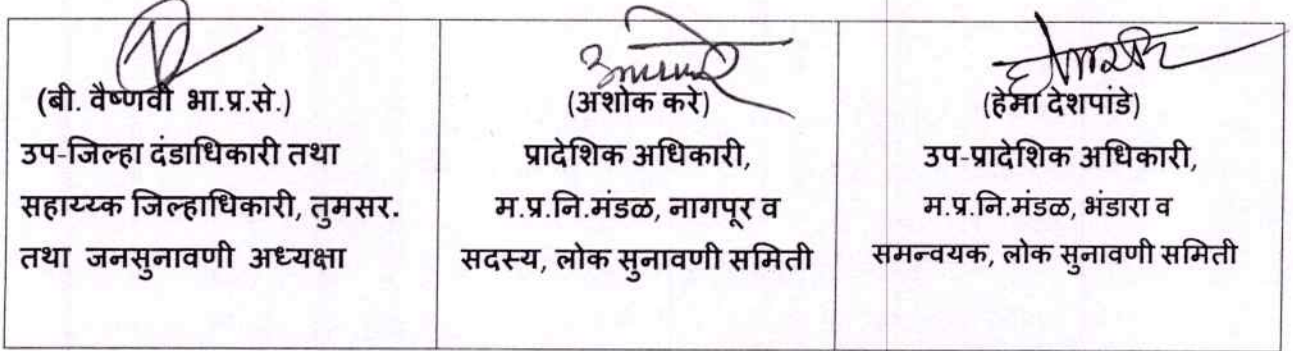 (बी. वैष्णवी भा.प्र.से.)
उप-जिल्हा दंडाधिकारी तथा
सहाय्य्क जिल्हाधिकारी, तुमसर.
तथा जनसुनावणी अध्यक्षा
(अशोक करे)
प्रादेशिक अधिकारी,
म.प्र.नि.मंडळ, नागपूर व
सदस्य, लोक सुनावणी समिती
(हेमा देशपांडे)
उप-प्रादेशिक अधिकारी,
म.प्र.नि.मंडळ, भंडारा व
समन्वयक, लोक सुनावणी समिती